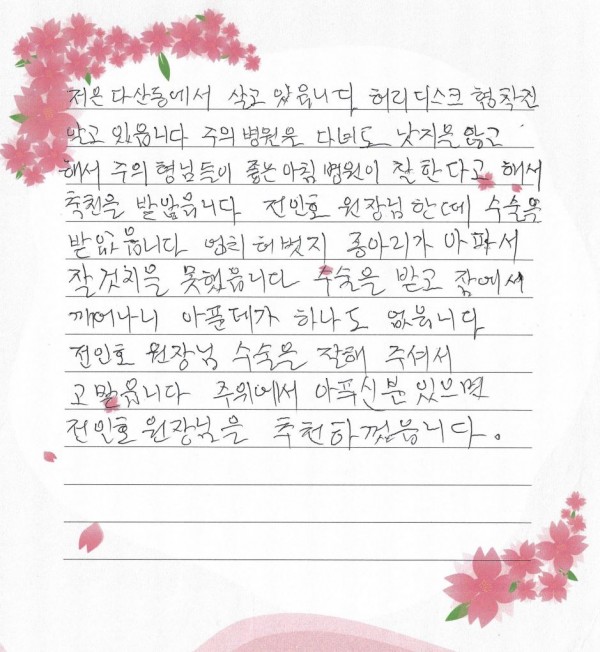 저은 다산동에서 살고 있읍니다 허리디스크 협착진
알고 있읍니다 주의병원을 다녀도 낫지을 않고
해서 주의 형님들이 좋은아침 병원이 잘한다고 해서
축천을 받았읍니다 전인호 원장님한데 수술을
받았읍니다 엉치 허벗지 종아리가 아파서
잘 것치을 못했읍니다 수술을 받고 잠에서
깨어나니 아푼데가 하나도 없읍니다
전인호 원장님 수술은 잘해 주셔서
고맙읍니다 주위에서 아푸신분 있으면
전인호 원장님을 축천하겠읍니다.